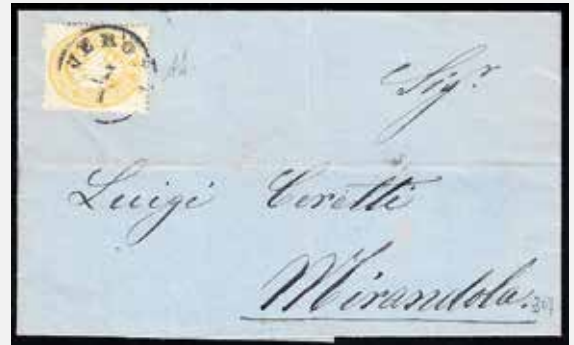 VERO
Sig.r
Luigi Ceretti
Mirandola.